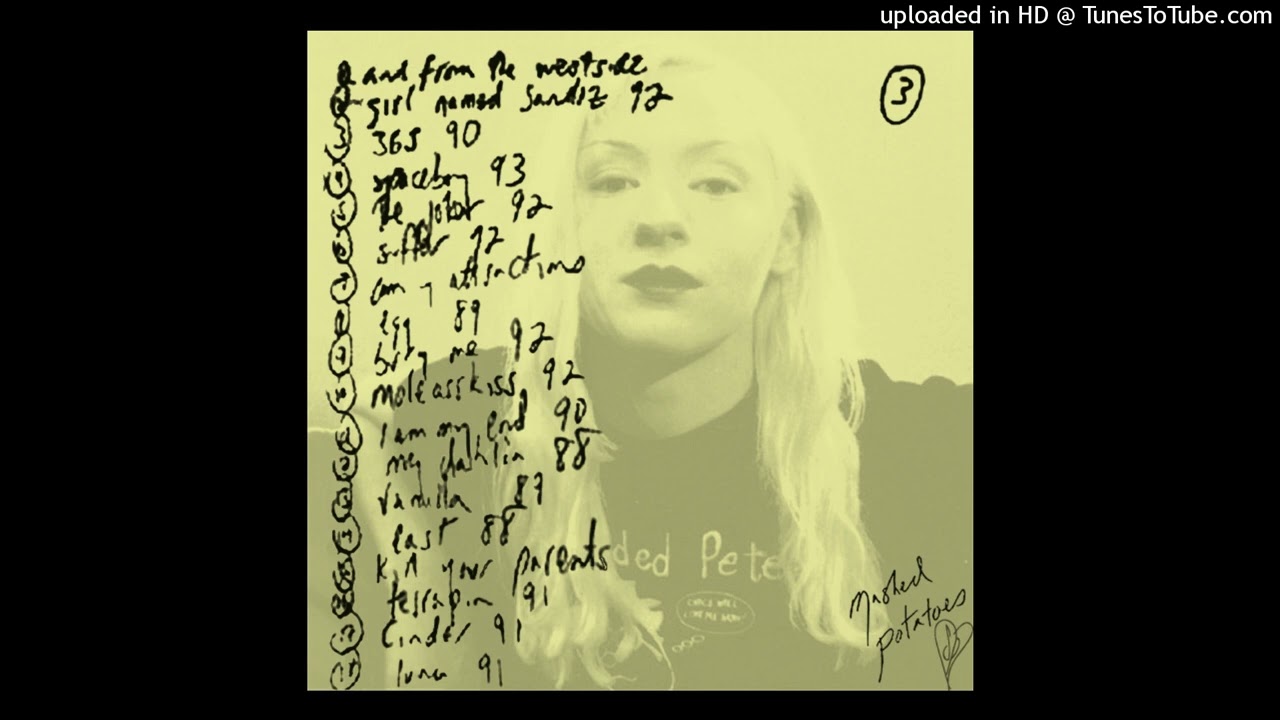 uploaded in HD @ TunesToTube.com
and from the westside
girl named sandoz 92
365 90
spaceboy 93
the joker 92
suffer 92
attractions
egg 89
bury me 92
moleasskiss 92
I am my end 90
my dahlia 88
vanilla 87
east 88
your parents
terrapin 91
Cinder 91
luna 91
3
ded Pete
Mashed
potatoes